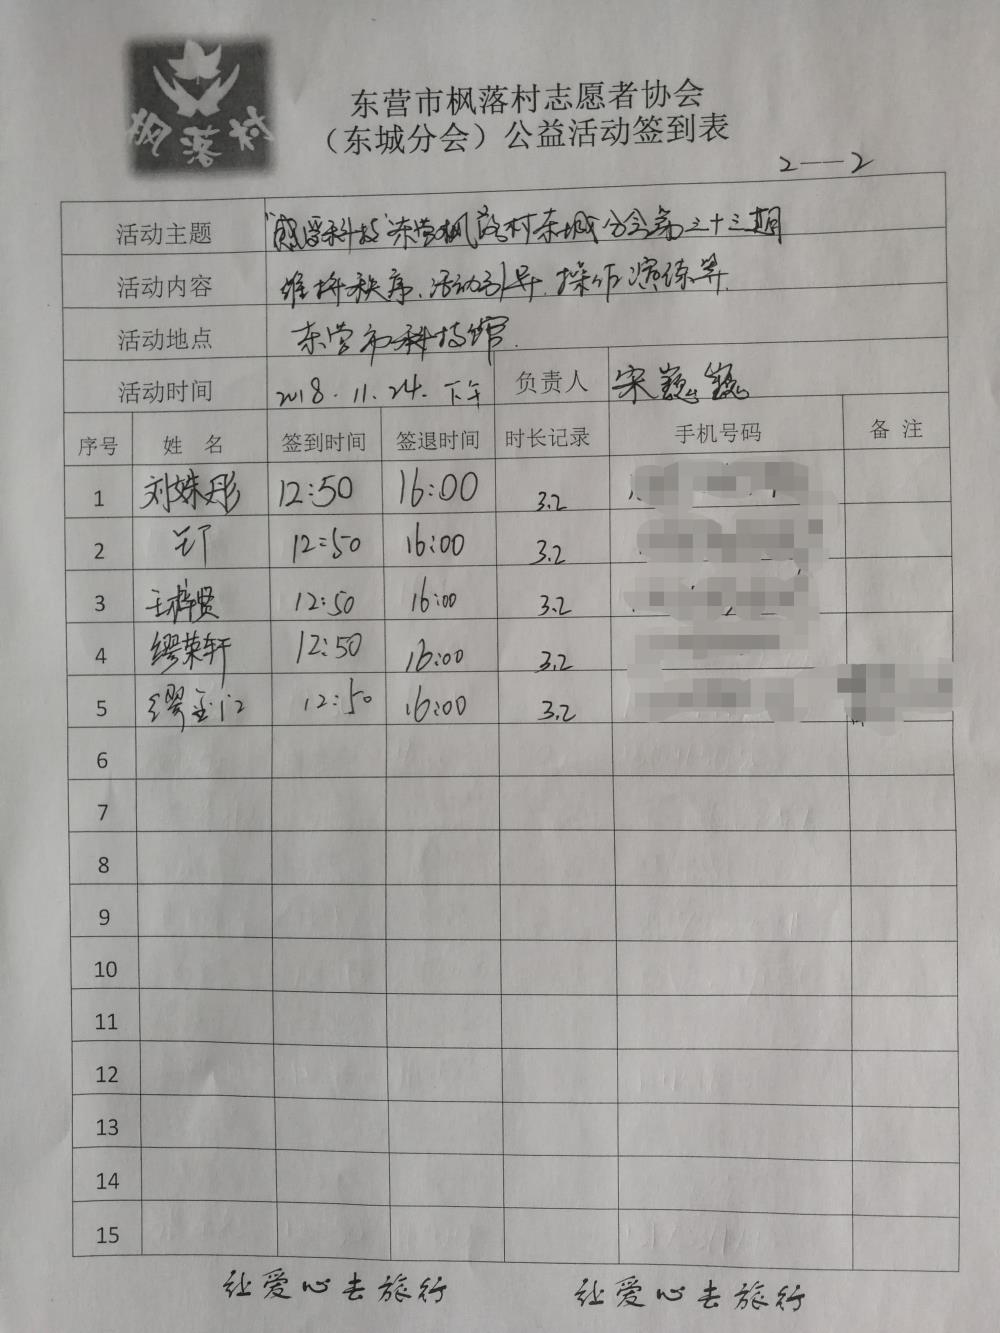 枫落村
东营市枫落村志愿者协会
（东城分会）公益活动签到表
2—2
活动主题 "感受科技"东营枫落村东城分会第三十三期
活动内容 维持秩序、活动引导、操作演练等
活动地点 东营市科技馆.
活动时间 2018.11.24.下午 负责人 宋巍巍
序号 姓 名 签到时间 签退时间 时长记录 手机号码 备 注
1 刘姝彤 12:50 16:00 3.2
2 12:50 16:00 3.2
3 王梓贤 12:50 16:00 3.2
4 缪荣轩 12:50 16:00 3.2
5 12:50 16:00 3.2
6
7
8
9
10
11
12
13
14
15
让爱心去旅行 让爱心去旅行